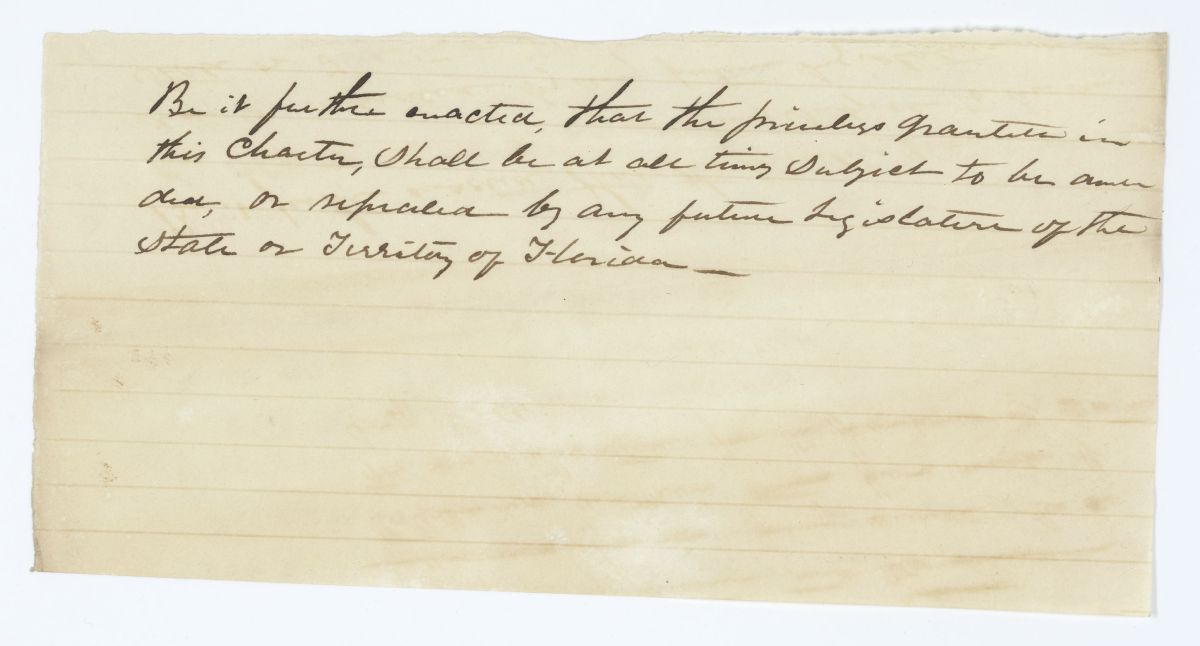 Be it further enacted, that the privileges granted in
this Charter, shall be at all times subject to be amen
ded, or repealed by any future Legislature of the
State or Territory of Florida —